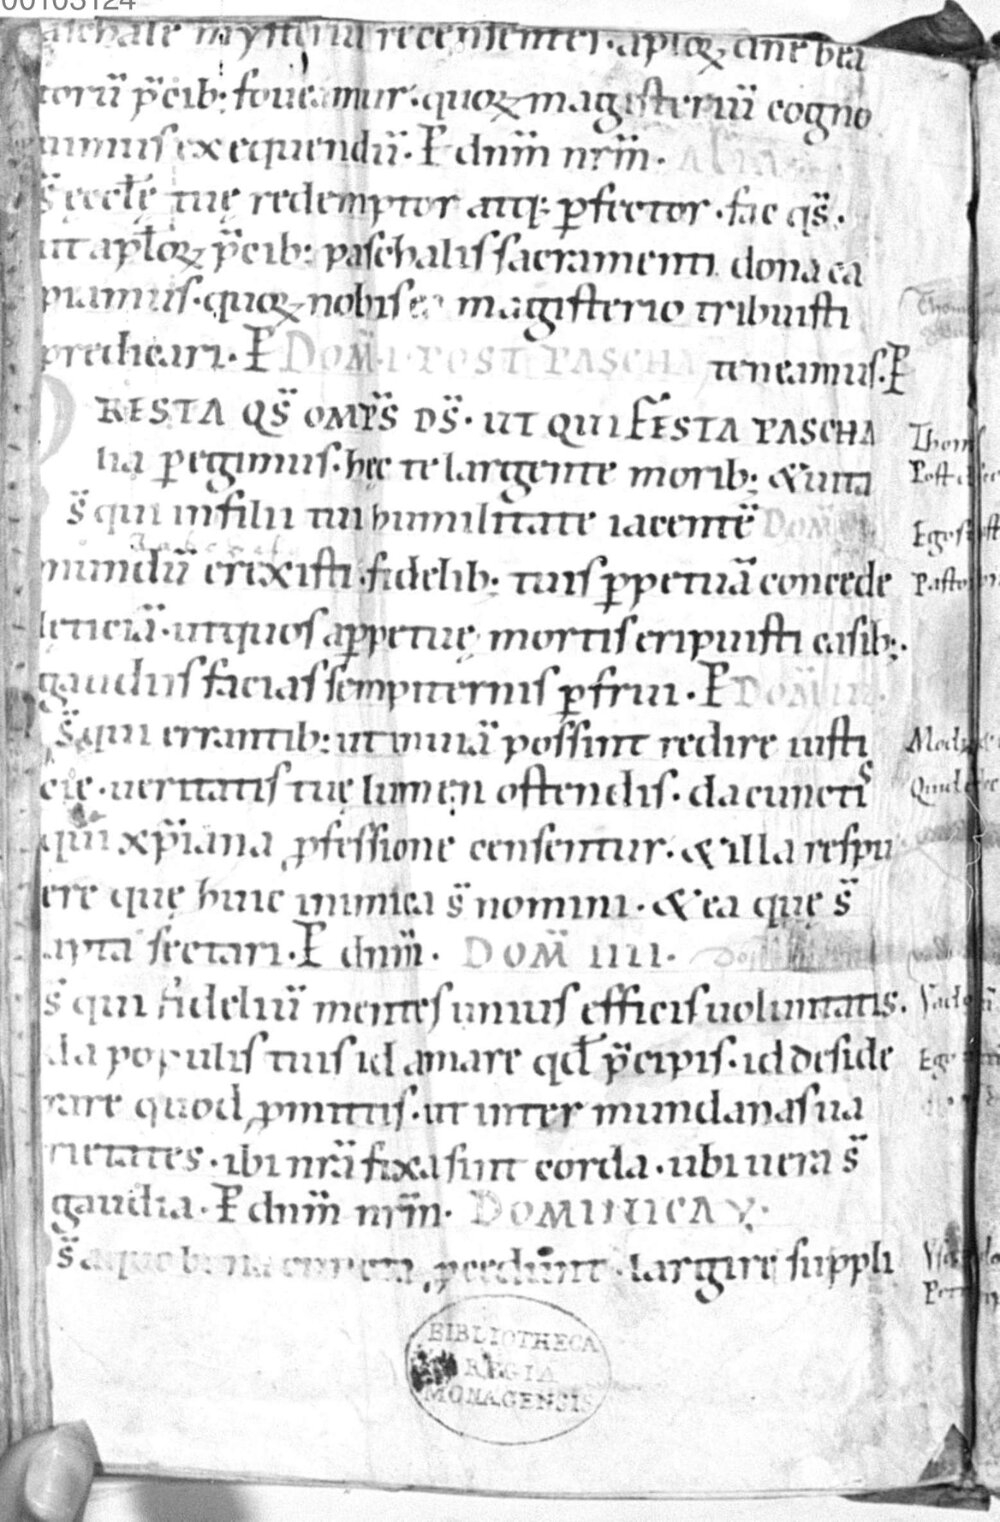 00103124
paschale mysteriũ recensentes · aplo℞ oñe bea
torũ p̃cib; foueamur · quo℞ magisteriũ cogno
uimus exequendũ · P dñm nr̃m · ALIA
s̃ eccłę tuę redemptor atq; ꝑfector · fac qs̃ ·
ut apło℞ p̃cib; paschalis sacramenti dona ca
piamus · quo℞ nobis ea magisterio tribuisti
predicari · P DOM̃ · I · POST PASCHA teneamus · P
RESTA QS̃ OMP̃S DS̃ · UT QUI FESTA PASCHA
lia ꝑegimus · hęc te largente morib; & uita
s̃ qui in filii tui humilitate iacentẽ DOM̃
mundũ erexisti · fidelib; tuis ꝑpetuã concede
lęticiã · ut quos a ꝑpetuę mortis eripuisti casib; ·
gaudiis facias sempiternis ꝑfrui · P DOM̃ III ·
s̃ qui errantib; ut in uiã possint redire iusti
cie · ueritatis tuę lumen ostendis · da cunctis
qui xp̃iana ꝓfessione censentur · & illa respu
ere quę huic inimica s̃ nomini · & ea quę s̃
apta sectari · P dñm · DOM̃ IIII ·
s̃ qui fideliũ mentes unius efficis uoluntatis ·
da populis tuis id amare qđ p̃cipis · id deside
rare quod ꝓmittis · ut inter mundanas ua
rietates · ibi nr̃a fixa sint corda · ubi uera s̃
gaudia · P dñm nr̃m · DOMINICA V ·
s̃ a quo bona cuncta ꝓcedunt · largire suppli
BIBLIOTHECA
REGIA
MONACENSIS